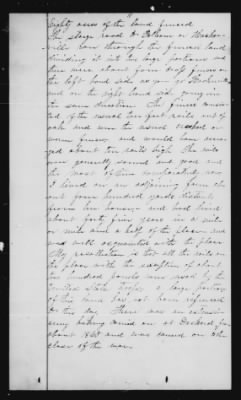 Eighty acres of the land fenced.
The stage road to Dekern or Hender-
ville ran through the fenced land
dividing it into two large portions and
there were about four drop fences on
the left hand side as you go
and on the right hand side going in
the same direction. The fence consist-
ed of the usual ten foot rails out of
oak and were the usual crooked or
worm fences and would have avera-
ged about ten rails high. The rails
were generally sound and good and
the most of them comparatively new.
I lived on an adjoining farm ab-
out four hundred yards distant
from his house, and had lived
about forty five years in a mile
or mile and a half of the place and
was well acquainted with the place.
My recollection is that all the rails on
the place with the exception of about
one hundred panels were used by the
United States Troops a large portion
of this land has not been refenced
to this day. There was an extensive
army baking carried on at Deckerd, Tenn.
about 1863 and was carried on till
close of the war.